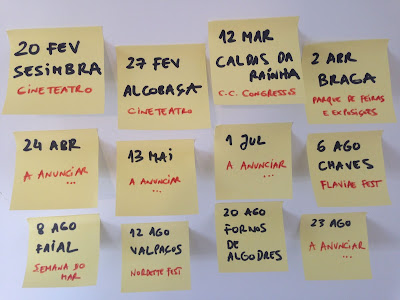 20 FEV
SESIMBRA
CINETEATRO
27 FEV
ALCOBAÇA
CINETEATRO
12 MAR
CALDAS DA
RAINHA
C.C. CONGRESSOS
2 ABR
BRAGA
PARQUE DE FEIRAS
E EXPOSIÇÕES
24 ABR
A ANUNCIAR
...
13 MAI
A ANUNCIAR
...
1 JUL
A ANUNCIAR
...
6 AGO
CHAVES
FLAVIAE FEST
8 AGO
FAIAL
SEMANA DO
MAR
12 AGO
VALPAÇOS
NORDESTE FEST
20 AGO
FORNOS
DE
ALGODRES
23 AGO
A ANUNCIAR
...